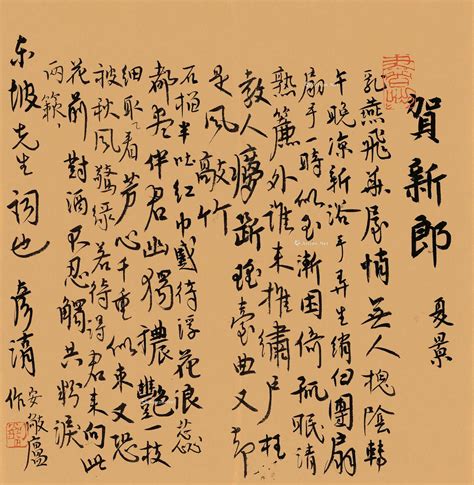 賀新郎 夏景
乳燕飛華屋悄無人槐陰轉
午晚凉新浴手弄生綃白團扇
扇手一時似玉漸困倚孤眠清
熟簾外誰來推繡戶枉
教人夢斷瑤臺曲又却
是風敲竹
石榴半吐紅巾蹙待浮花浪蕊
都盡伴君幽獨穠艷一枝
細取看芳心千重似束又恐
被秋風驚綠若待得君來向此
花前對酒不忍觸共粉淚
兩簌、
东坡先生詞也 彦
作